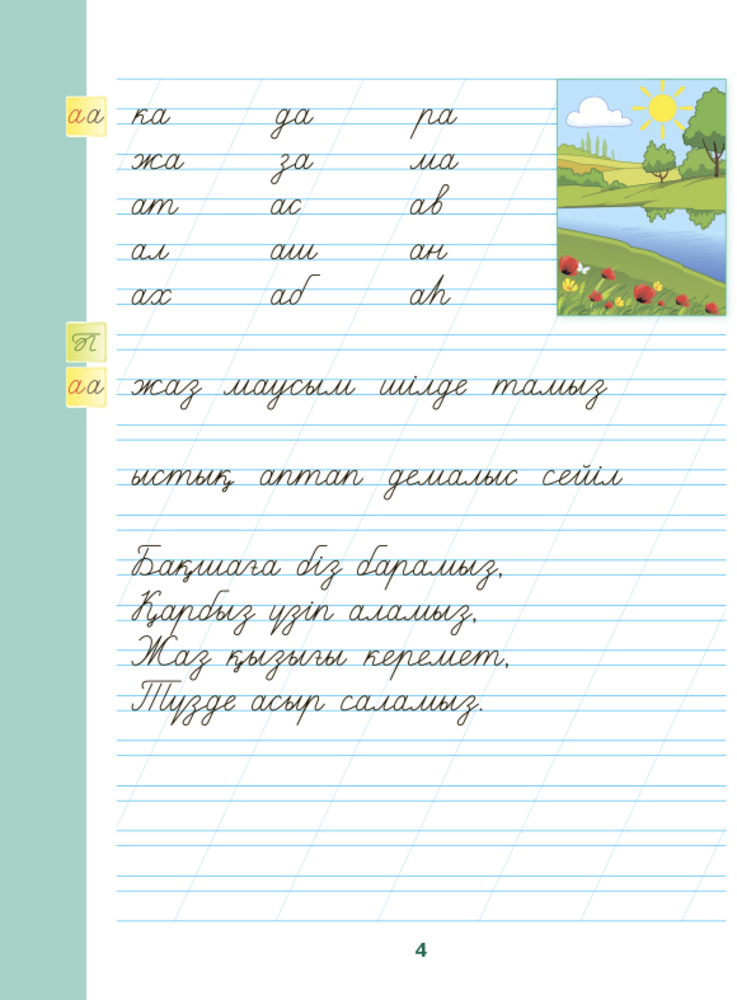 аа
ка да ра
жа за ма
ат ас ав
ал аш ан
ах аб аһ
Т
аа
жаз маусым шілде тамыз
ыстық аптап демалыс сейіл
Бақшаға біз барамыз,
Қарбыз үзіп аламыз,
Жаз қызығы керемет,
Түзде асыр саламыз.
4